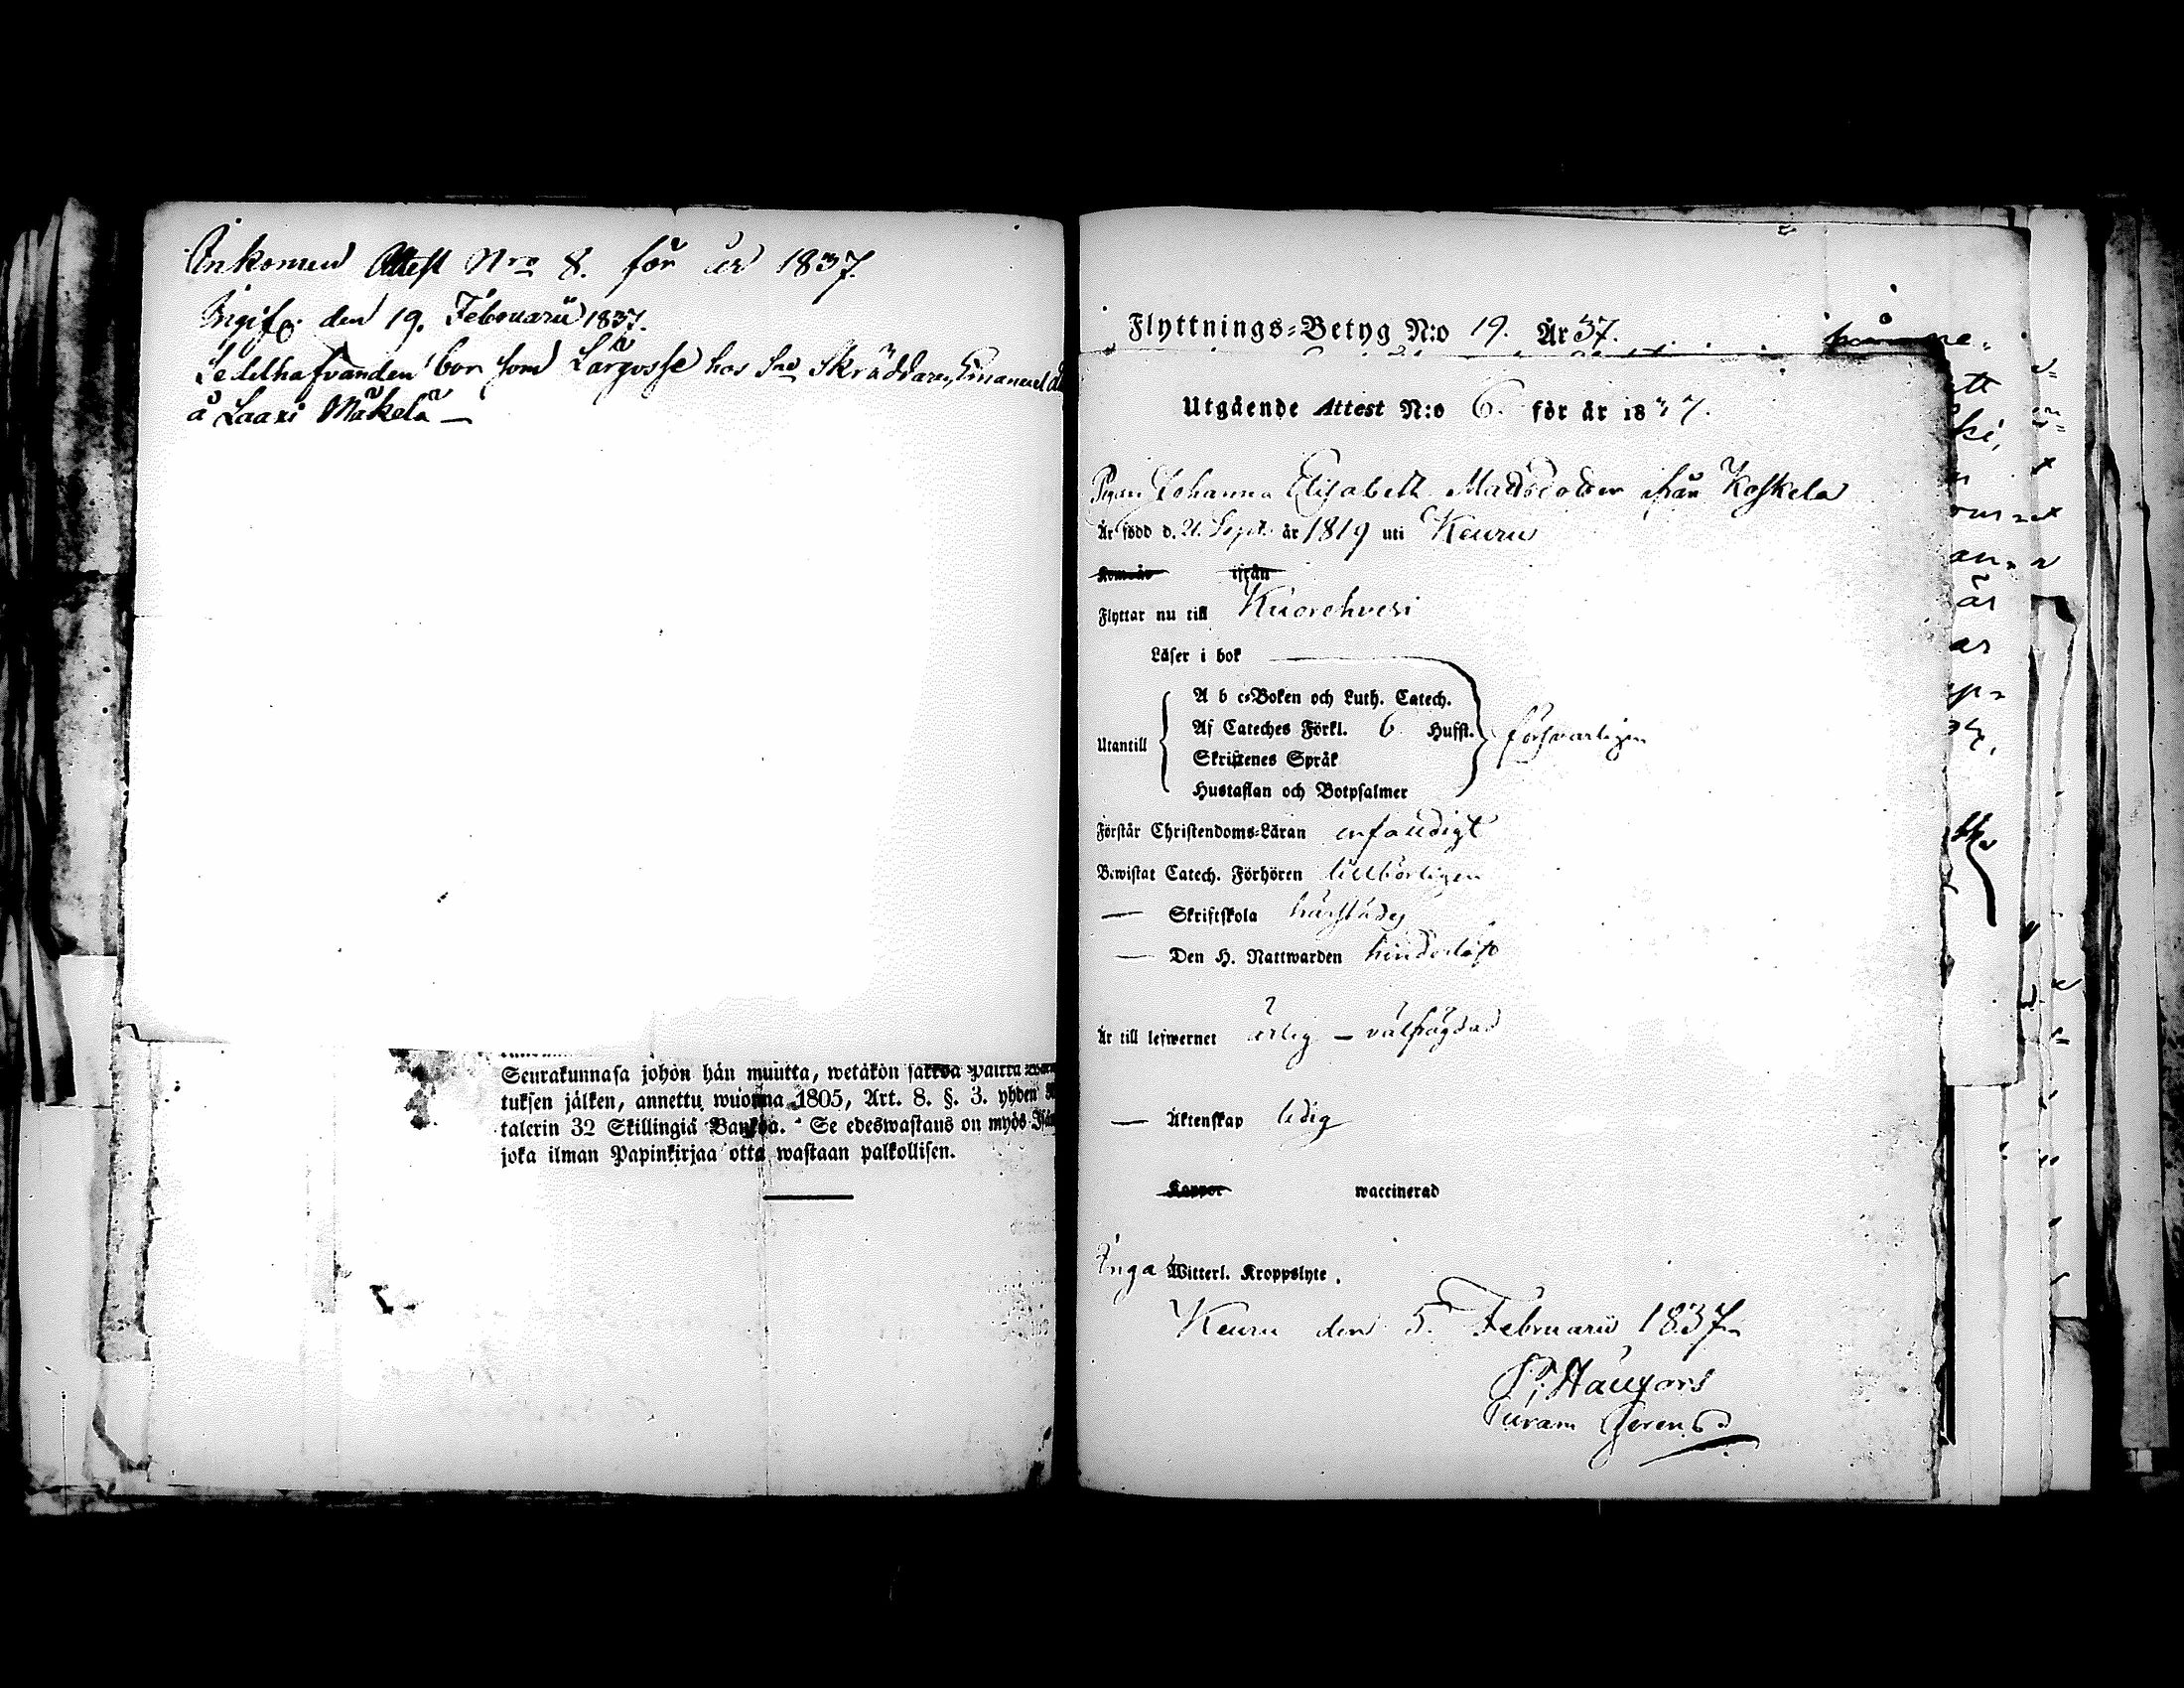 Ankommen Attest Nro 8. för år 1837.
Ingifv. den 19. Februarii 1837.
Sedelhafvanden bor som Lärgosse hos Sne Skräddaren Emanuel
å Laaxi Mäkelä —
Seurakunnasa johon hän muutta, wetäkön
tuksen jälken, annettu wuonna 1805, Art. 8. §. 3. yhden
talerin 32 Skillingiä Bankoa. Se edeswastaus on myös
joka ilman Papinkirjaa otta wastaan palkollisen.
Flyttnings-Betyg N:o 19. År 37.
Utgående Attest N:o 6. för år 1837.
Pigan Johanna Elisabeth Mattsdotter ifrån Koskela
Är född d. 21. Sept. år 1819 uti Keuru
Kom år ifrån
Flyttar nu till Kuorehvesi
Läser i bok
A b c-Boken och Luth. Catech.
Utantill Af Cateches Förkl. 6 Hufst. försvarligen
Skriftenes Språk
Hustaflan och Botpsalmer
Förstår Christendoms-Läran enfaldigt
Bewistat Catech. Förhören tillbörligen
— Skriftskola härstädes
— Den H. Nattwarden hinderlös
Är till lefwernet ärlig — välfrägdad
— Äktenskap ledig
Koppor waccinerad
Inga Witterl. Kroppslyte.
Keuru den 5. Februarii 1837.